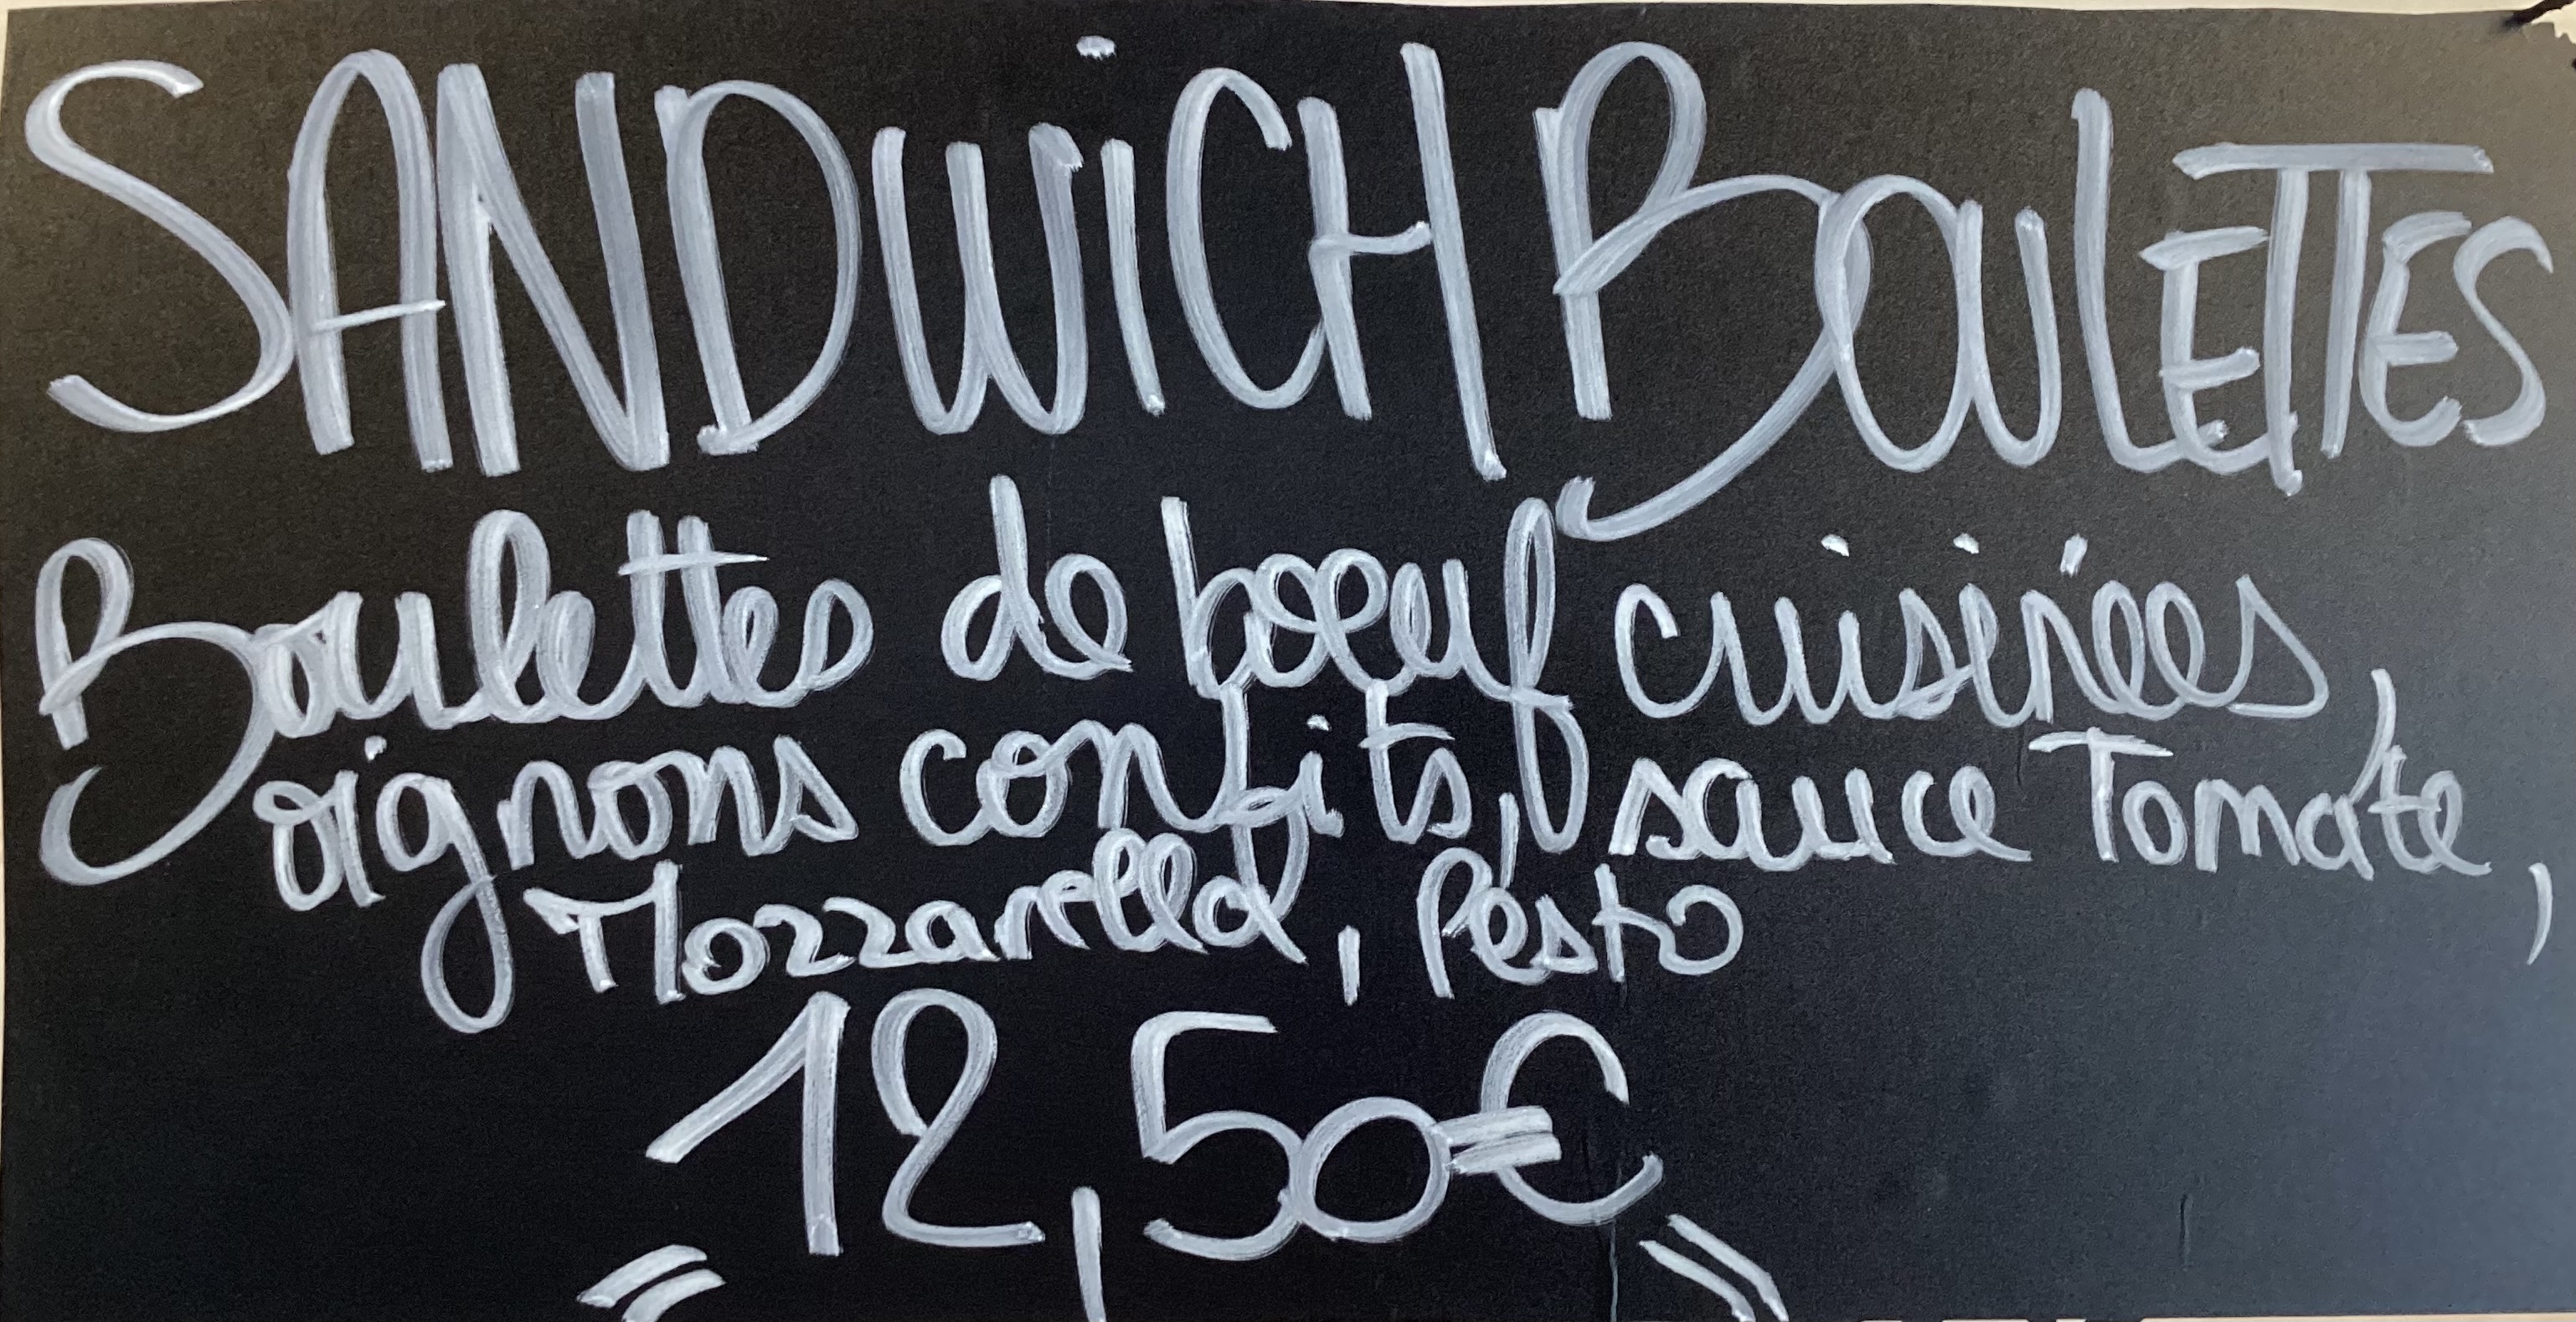 SANDWiCH BOULETTES
Boulettes de bœuf cuisinées,
oignons confits, sauce Tomate,
Mozzarella, Pésto
12,50€